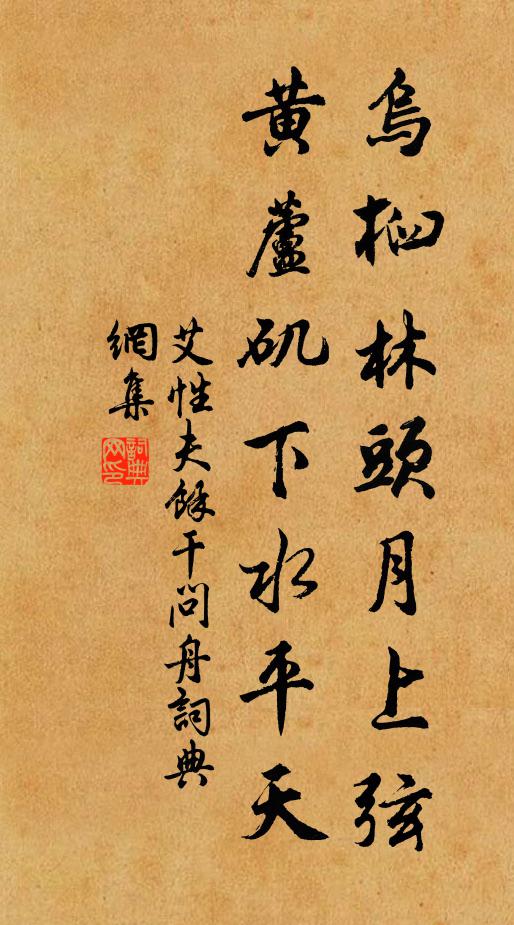 烏桕林頭月上弦
黃蘆矶下水平天
艾性夫餘干問舟詞典
網集
詞典網印